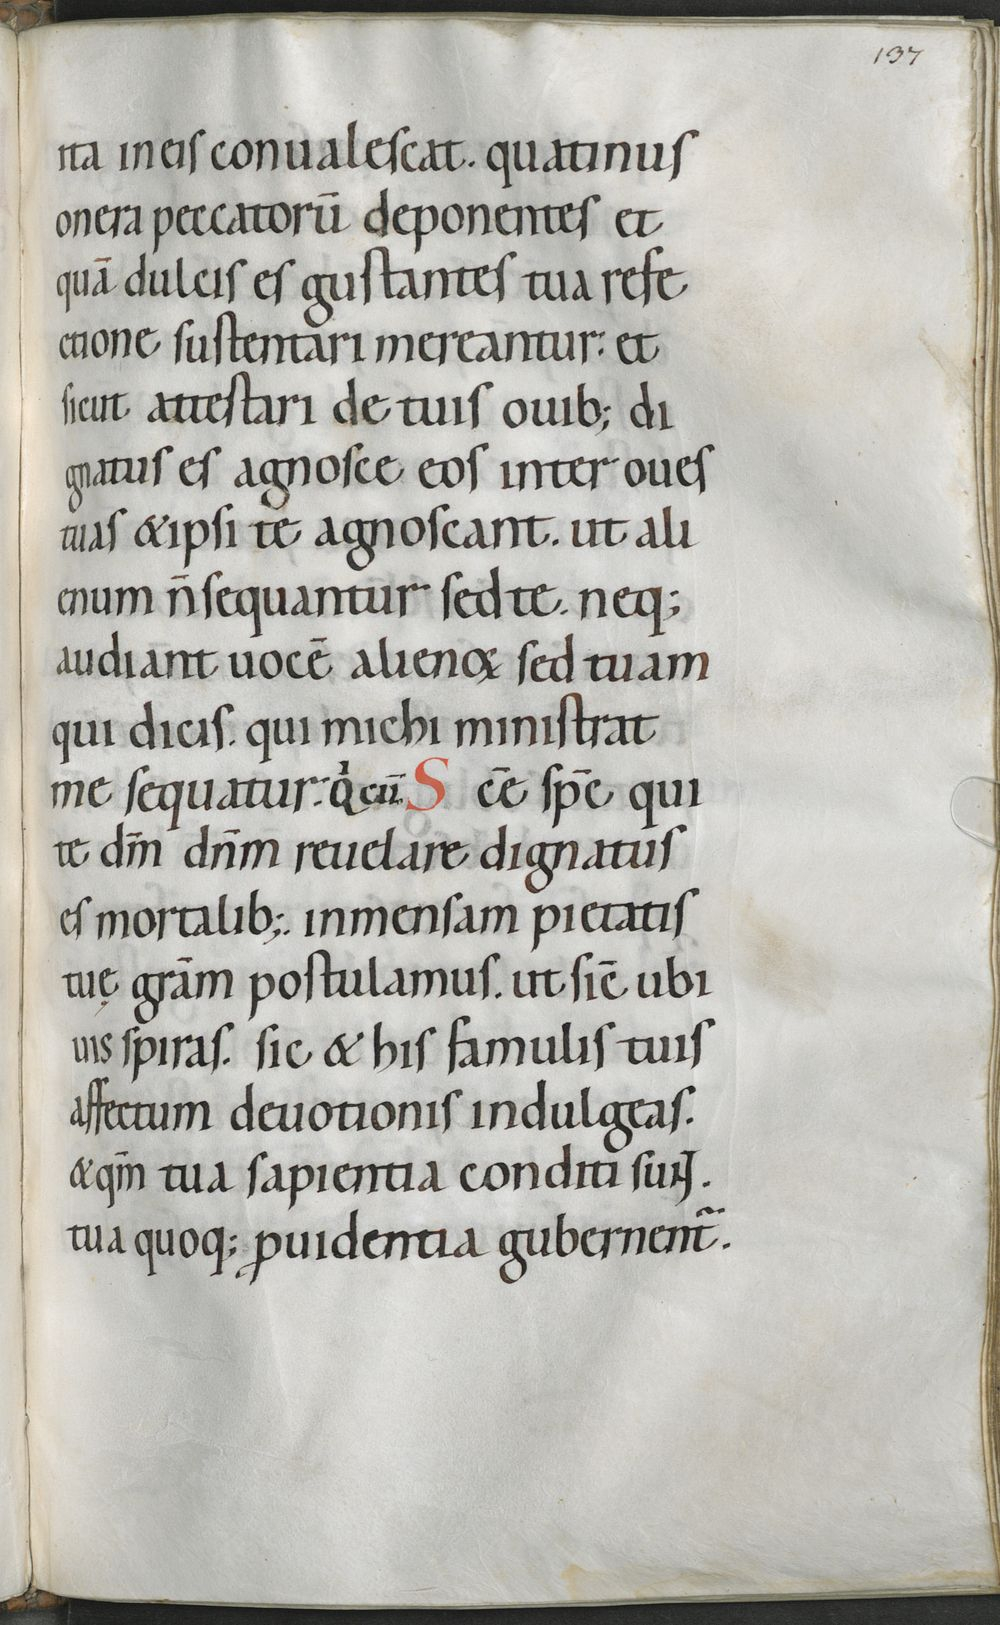 137
ita in eis conualescat. quatinus
onera peccatorū deponentes et
quā dulcis es gustantes tua refe
ctione sustentari mereantur: et
sicut attestari de tuis ouib; di
gnatus es agnosce eos inter oues
tuas & ipsi te agnoscant. ut ali
enum n̄ sequantur sed te. neq;
audiant uocē alienoꝝ sed tuam
qui dicis. qui michi ministrat
me sequatur. Q̇ cū. S cē sp̄c qui
te dm̄ dn̄m reuelare dignatus
es mortalib;. inmensam pietatis
tuę grām postulamus. ut sic̄ ubi
uis spiras. sic & his famulis tuis
affectum deuotionis indulgeas.
& qm̄ tua sapientia conditi suɴͭ.
tua quoq; ꝓuidentia gubernent᷑.